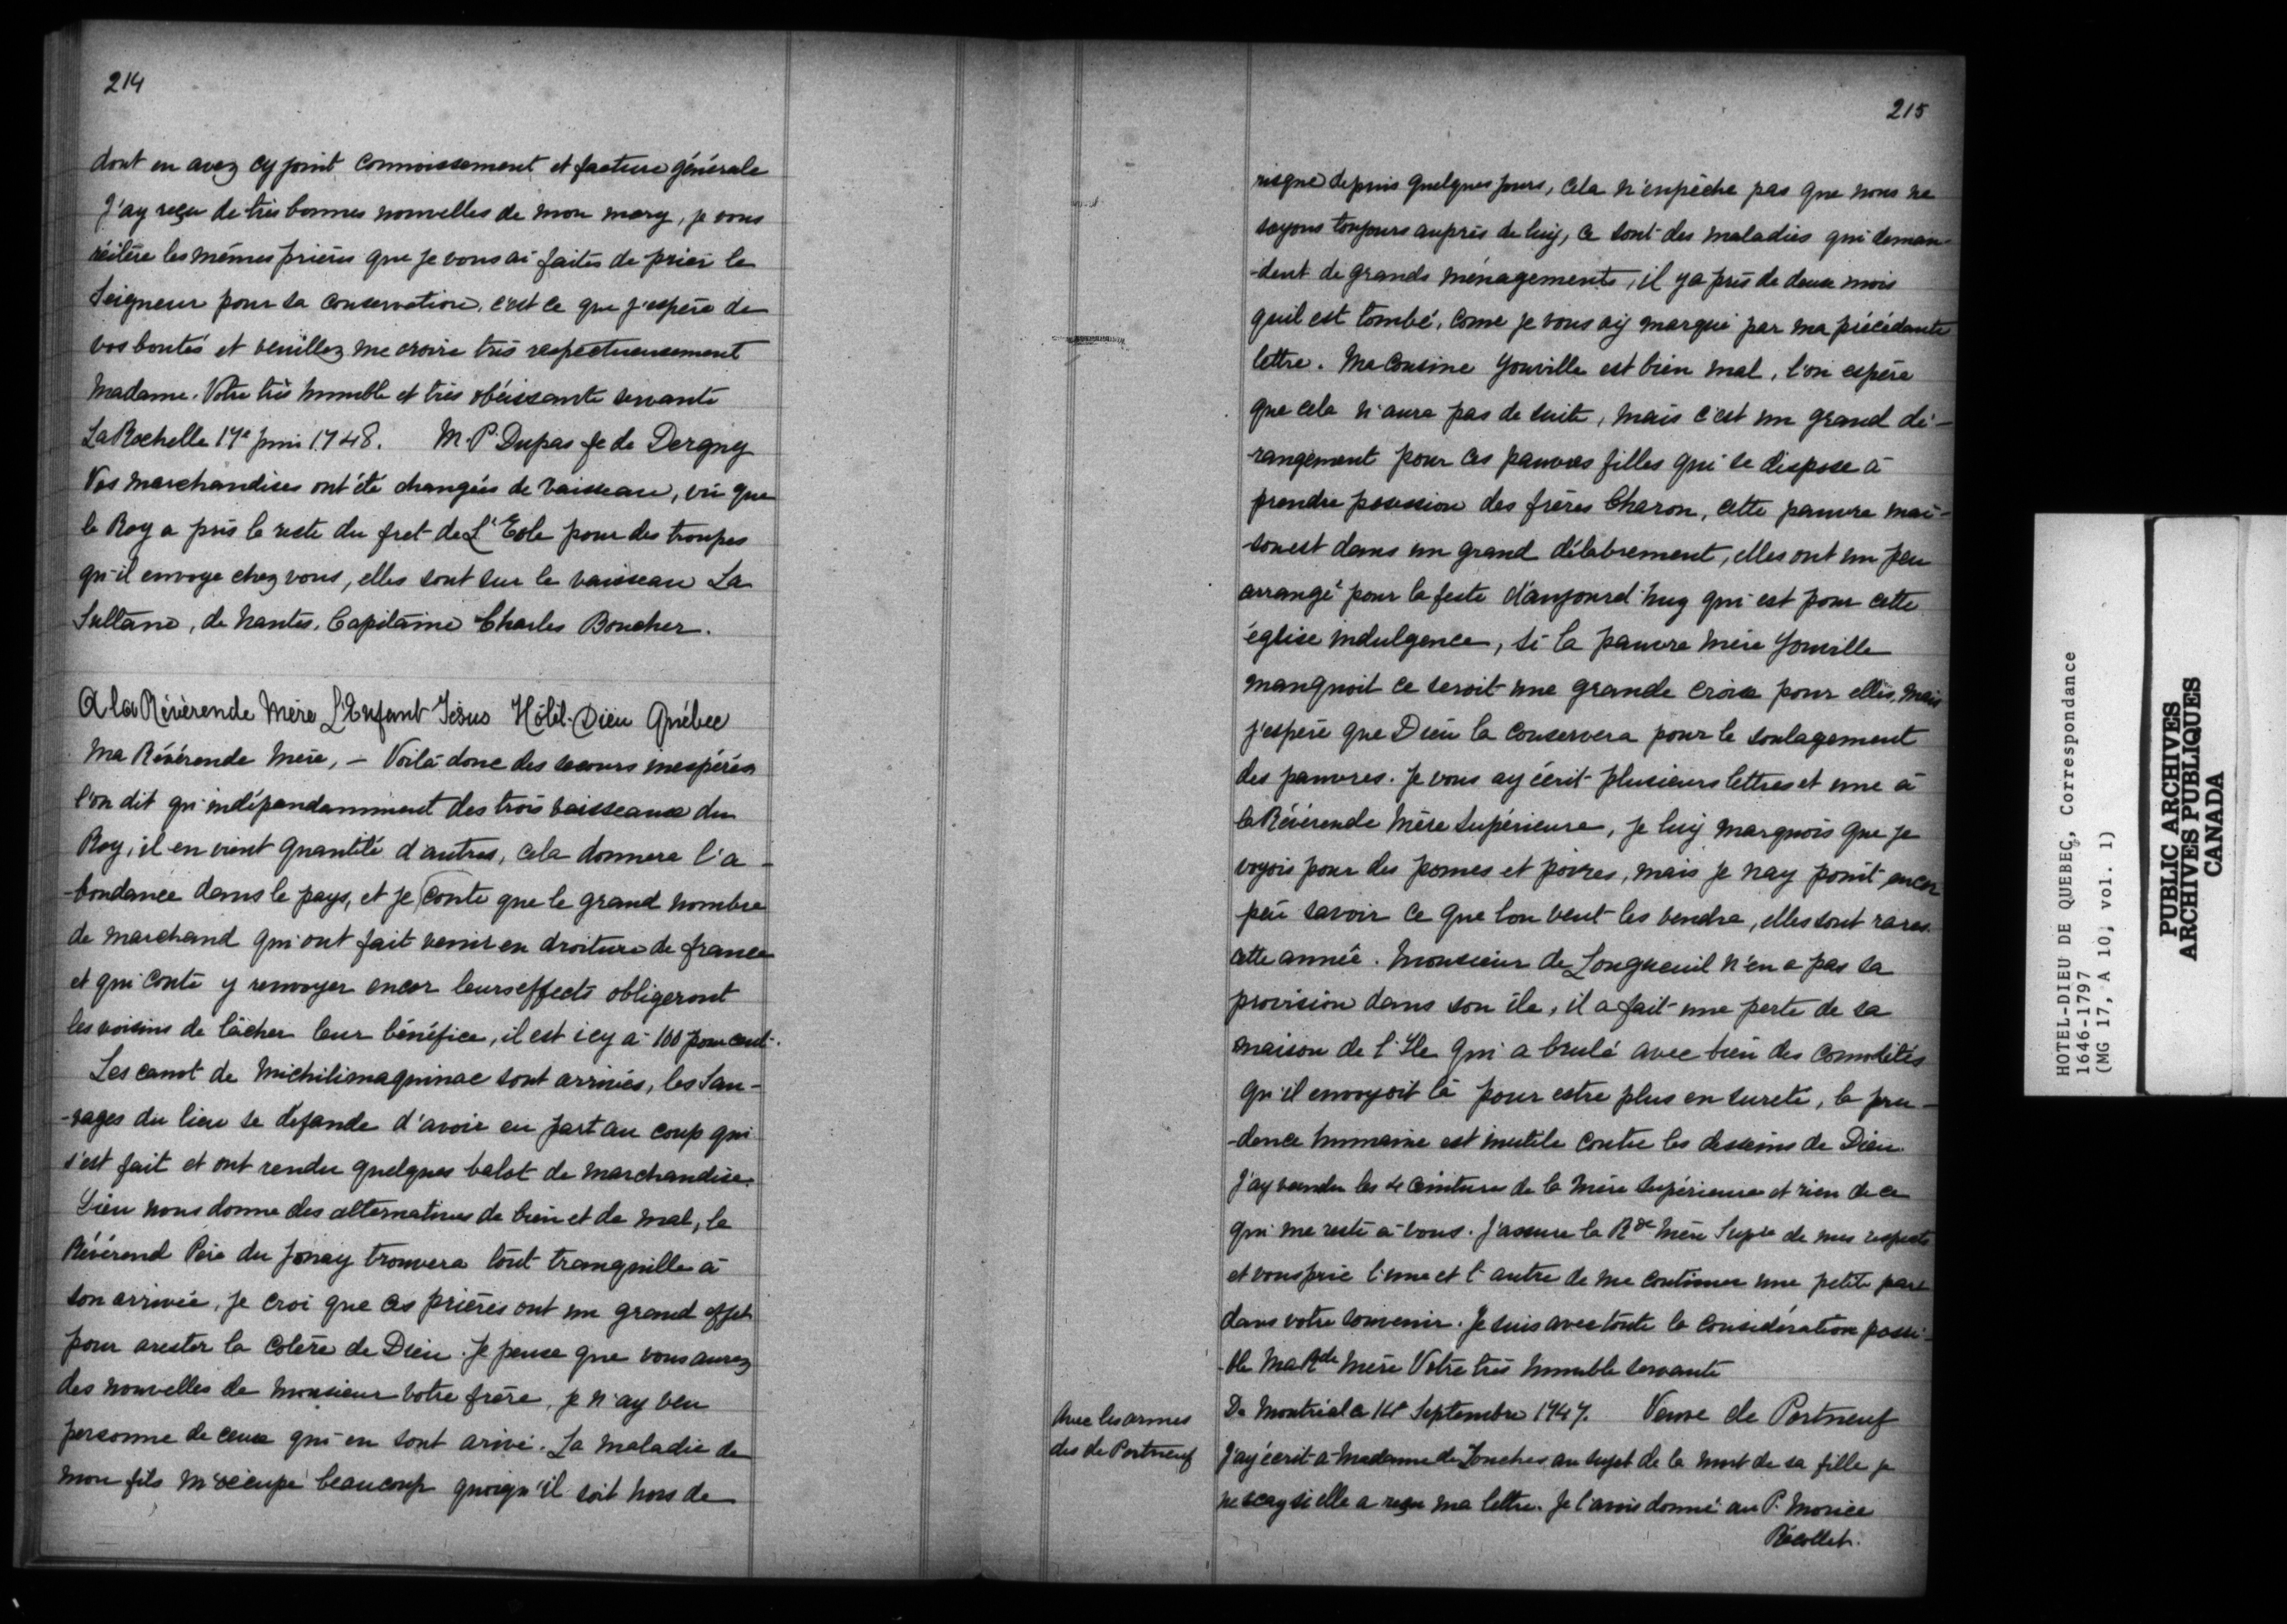 214
dont en avez cy joint connoissement et facture générale
J'ay reçu de très bonnes nouvelles de mon mary, je vous
réitère les mêmes prières que je vous ai faites de prier le
Seigneur pour sa conservation, c'est ce que j'espère de
vos bontés et veuillez me croire très respectueusement
Madame. Votre très humble et très obéissante servante
La Rochelle 17e juin 1748. M. P. Dupas fe de Dergny
Vos marchandises ont été changées de vaisseau, vu que
le Roy a pris le reste du fret de L'Eole pour des troupes
qu'il envoye chez vous, elles sont sur le vaisseau La
Sultane, de Nantes. Capitaine Charles Boucher.
A la Révérende Mère L'Enfant Jésus Hôtel-Dieu Québec
Ma Révérende Mère, – Voilà donc des secours inespérés
l'on dit qu'indépendamment des trois vaisseaux du
Roy, il en vient quantité d'autres, cela donnera l'a-
-bondance dans le pays, et je conte que le grand nombre
de marchand qui ont fait venir en droiture de france
et qui conte y renvoyer encor leurs effects obligeront
les voisins de lâcher leur bénéfice, il est icy à 100 pour cent.
Les canot de Michilimaquinac sont arrivés, les Sau-
-vages du lieu se défande d'avoir eu part au coup qui
s'est fait et ont rendu quelques balot de marchandise.
Dieu nous donne des alternatives de bien et de mal, le
Révérend Père du Jonay trouvera tout tranquille à
son arrivée, je croi que ces prières ont un grand effet
pour arester la colère de Dieu. Je pense que vous aurez
des nouvelles de Monsieur votre frère, je n'ay veu
personne de ceux qui en sont arivé. La maladie de
mon fils m'occupe beaucoup quoiqu'il soit hors de
215
risque depuis quelques jours, cela n'enpêche pas que nous ne
soyons toujours auprès de luy, ce sont des maladies qui deman-
-dent de grands ménagements, il y a près de deux mois
quil est tombé, come je vous ay marqué par ma précédante
lettre. Ma Cousine Youville est bien mal, l'on espère
que cela n'aura pas de suite, mais c'est un grand dé-
-rangement pour ces pauvres filles qui se dispose à
prendre possession des frères Charon, cette pauvre mai-
-son est dans un grand délabrement, elles ont un peu
arrangé pour la feste d'aujourd'huy qui est pour cette
église indulgence, si la pauvre mère Youville
manquoit ce seroit une grande croix pour elles, mais
j'espère que Dieu la conservera pour le soulagement
des pauvres. Je vous ay écrit plusieurs lettres et une à
la Révérende Mère Supérieure, je luy marquois que je
voyois pour des pomes et poires, mais je n'ay point encor
peü savoir ce que l'on veut les vendre, elles sont rares
cette année. Monsieur de Longueuil n'en a pas sa
provision dans son île, il a fait une perte de sa
maison de l'Ile qui a brulé avec bien des comodités
qu'il envoyoit là pour estre plus en sureté, la pru-
-dence humaine est inutile contre les desseins de Dieu.
J'ay vendu les 4 ceintures de la Mère Supérieure et rien de ce
qui me reste à vous. J'assure la Rde Mère Supre de mes respects
et vous prie l'une et l'autre de me continuer une petite part
dans votre souvenir. Je suis avec toute la considération possi-
-ble Ma Rde Mère Votre très humble servante
De Montréal ce 14e Septembre 1747. Veuve de Portneuf
Avec les armes
des de Portneuf
J'ay écrit à Madame de Lonches au sujet de la mort de sa fille je
ne scay si elle a reçu ma lettre. Je l'avois donné au P. Morice
Récollet.
HOTEL-DIEU DE QUEBEC, Correspondance
1646-1797
(MG 17, A 10, vol. 1)
PUBLIC ARCHIVES
ARCHIVES PUBLIQUES
CANADA